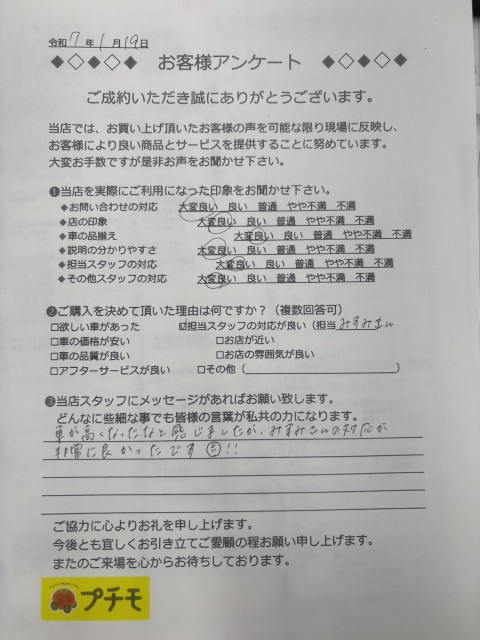 令和7年1月19日
◆◇◆◇◆ お客様アンケート ◆◇◆◇◆
ご成約いただき誠にありがとうございます。
当店では、お買い上げ頂いたお客様の声を可能な限り現場に反映し、
お客様により良い商品とサービスを提供することに努めています。
大変お手数ですが是非お声をお聞かせ下さい。
❶当店を実際にご利用になった印象をお聞かせ下さい。
◆お問い合わせの対応 大変良い 良い 普通 やや不満 不満
◆店の印象 大変良い 良い 普通 やや不満 不満
◆車の品揃え 大変良い 良い 普通 やや不満 不満
◆説明の分かりやすさ 大変良い 良い 普通 やや不満 不満
◆担当スタッフの対応 大変良い 良い 普通 やや不満 不満
◆その他スタッフの対応 大変良い 良い 普通 やや不満 不満
❷ご購入を決めて頂いた理由は何ですか?(複数回答可)
□欲しい車があった ☑担当スタッフの対応が良い(担当 みすみさん
□車の価格が安い □お店が近い
□車の品質が良い □お店の雰囲気が良い
□アフターサービスが良い □その他( )
❸当店スタッフにメッセージがあればお願い致します。
どんなに些細な事でも皆様の言葉が私共の力になります。
車が高くなったなと感じましたが、みすみさんの対応が
非常に良かったです!!
ご協力に心よりお礼を申し上げます。
今後とも宜しくお引き立てご愛顧の程お願い申し上げます。
またのご来場を心からお待ちしております。
プチモ